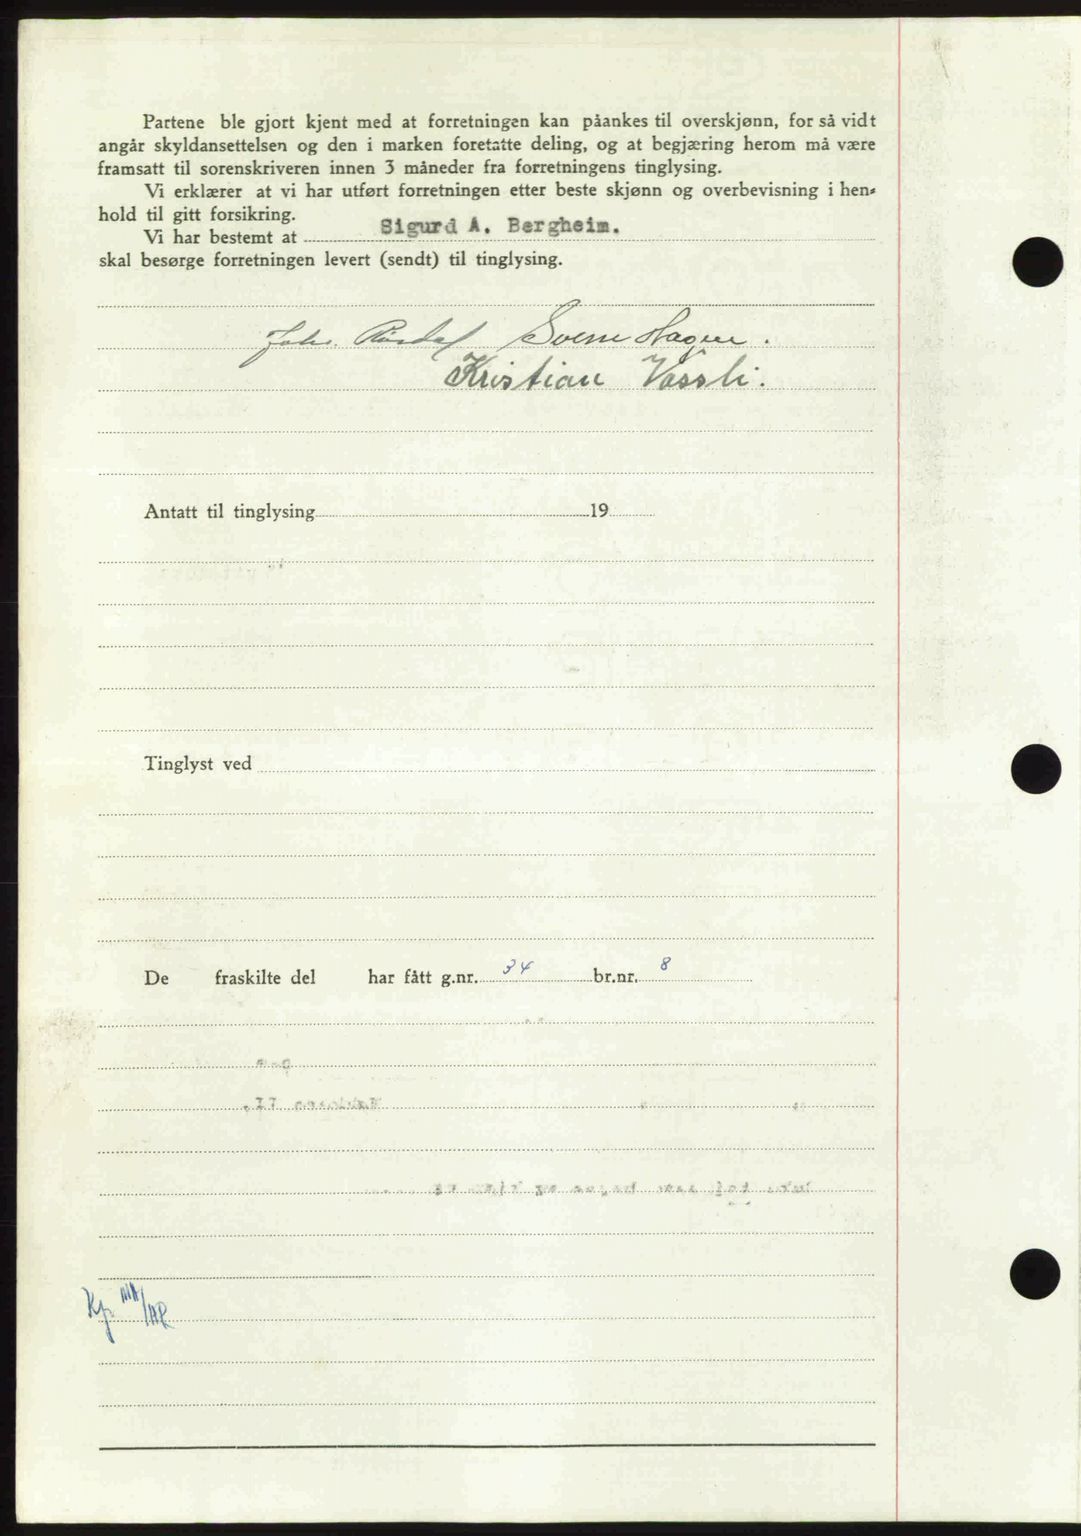 Partene ble gjort kjent med at forretningen kan påankes til overskjønn, for så vidt
angår skyldansettelsen og den i marken foretatte deling, og at begjæring herom må være
framsatt til sorenskriveren innen 3 måneder fra forretningens tinglysing.
Vi erklærer at vi har utført forretningen etter beste skjønn og overbevisning i hen-
hold til gitt forsikring.
Vi har bestemt at Sigurd A. Bergheim.
skal besørge forretningen levert (sendt) til tinglysing.
Svein Hagen.
Kristian Vassli.
Antatt til tinglysing 19
Tinglyst ved
De fraskilte del har fått g.nr. 34 br.nr. 8